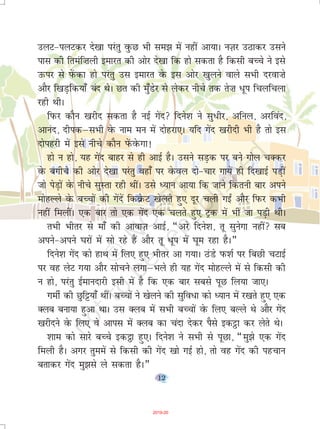 उलट-पलटकर देखा परंतु कुछ भी समझ में नहीं आया। नज़र उठाकर उसने
पास की तिमंज़िली इमारत की ओर देखा कि हो सकता है किसी बच्चे ने इसे
ऊपर से फेंका हो परंतु उस इमारत के इस ओर खुलने वाले सभी दरवाज़े
और खिड़कियाँ बंद थे। छत की मुँडेर से लेकर नीचे तक तेज़ धूप चिलचिला
रही थी।
फिर कौन खरीद सकता है नई गेंद? दिनेश ने सुधीर, अनिल, अरविंद,
आनंद, दीपक–सभी के नाम मन में दोहराए। यदि गेंद खरीदी भी है तो इस
दोपहरी में इसे नीचे कौन फेंकेगा!
हो न हो, यह गेंद बाहर से ही आई है। उसने सड़क पर बने गोल चक्कर
के बगीचे की ओर देखा परंतु वहाँ पर केवल दो-चार गायें ही दिखाई पड़ीं
जो पेड़ों के नीचे सुस्ता रही थीं। उसे ध्यान आया कि जाने कितनी बार अपने
मोहल्ले के बच्चों की गेंदें क्रिकेट खेलते हुए दूर चली गईं और फिर कभी
नहीं मिलीं। एक बार तो एक गेंद एक चलते हुए ट्रक में भी जा पड़ी थी।
तभी भीतर से माँ की आवाज़ आई, “अरे दिनेश, तू सुनेगा नहीं? सब
अपने-अपने घरों में सो रहे हैं और तू धूप में घूम रहा है।”
दिनेश गेंद को हाथ में लिए हुए भीतर आ गया। ठंडे फ़र्श पर बिछी चटाई
पर वह लेट गया और सोचने लगा–भले ही यह गेंद मोहल्ले में से किसी की
न हो, परंतु ईमानदारी इसी में है कि एक बार सबसे पूछ लिया जाए।
गर्मी की छुट्टियाँ थीं। बच्चों ने खेलने की सुविधा को ध्यान में रखते हुए एक
क्लब बनाया हुआ था। उस क्लब में सभी बच्चों के लिए बल्ले थे और गेंद
खरीदने के लिए वे आपस में क्लब का चंदा देकर पैसे इकट्ठा कर लेते थे।
शाम को सारे बच्चे इकट्ठा हुए। दिनेश ने सभी से पूछा, “मुझे एक गेंद
मिली है। अगर तुममें से किसी की गेंद खो गई हो, तो वह गेंद की पहचान
बताकर गेंद मुझसे ले सकता है।”
12
2019-20